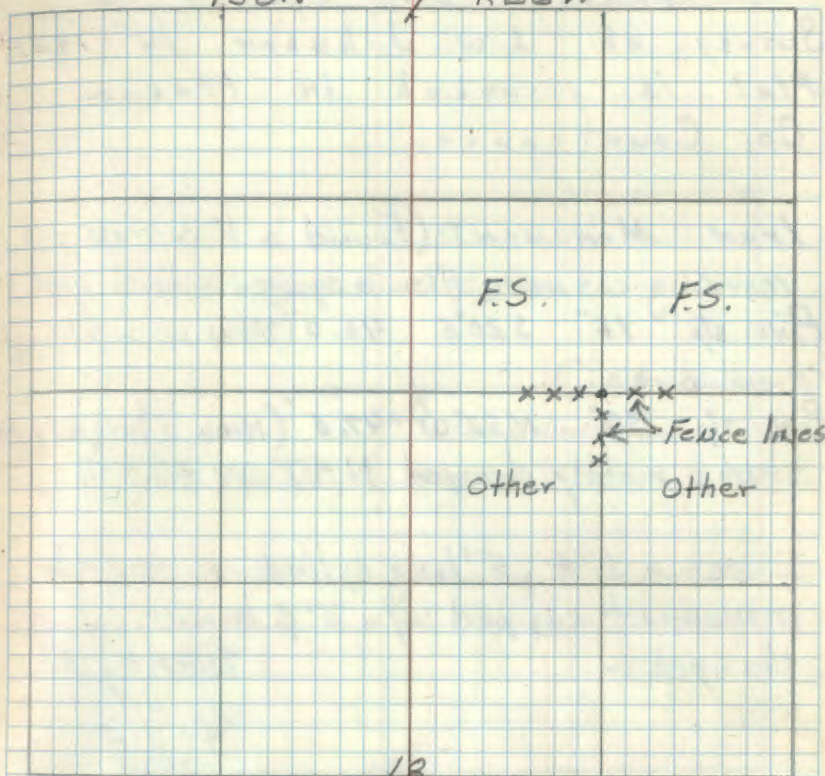 F.S. F.S.
Fence lines
Other Other
18